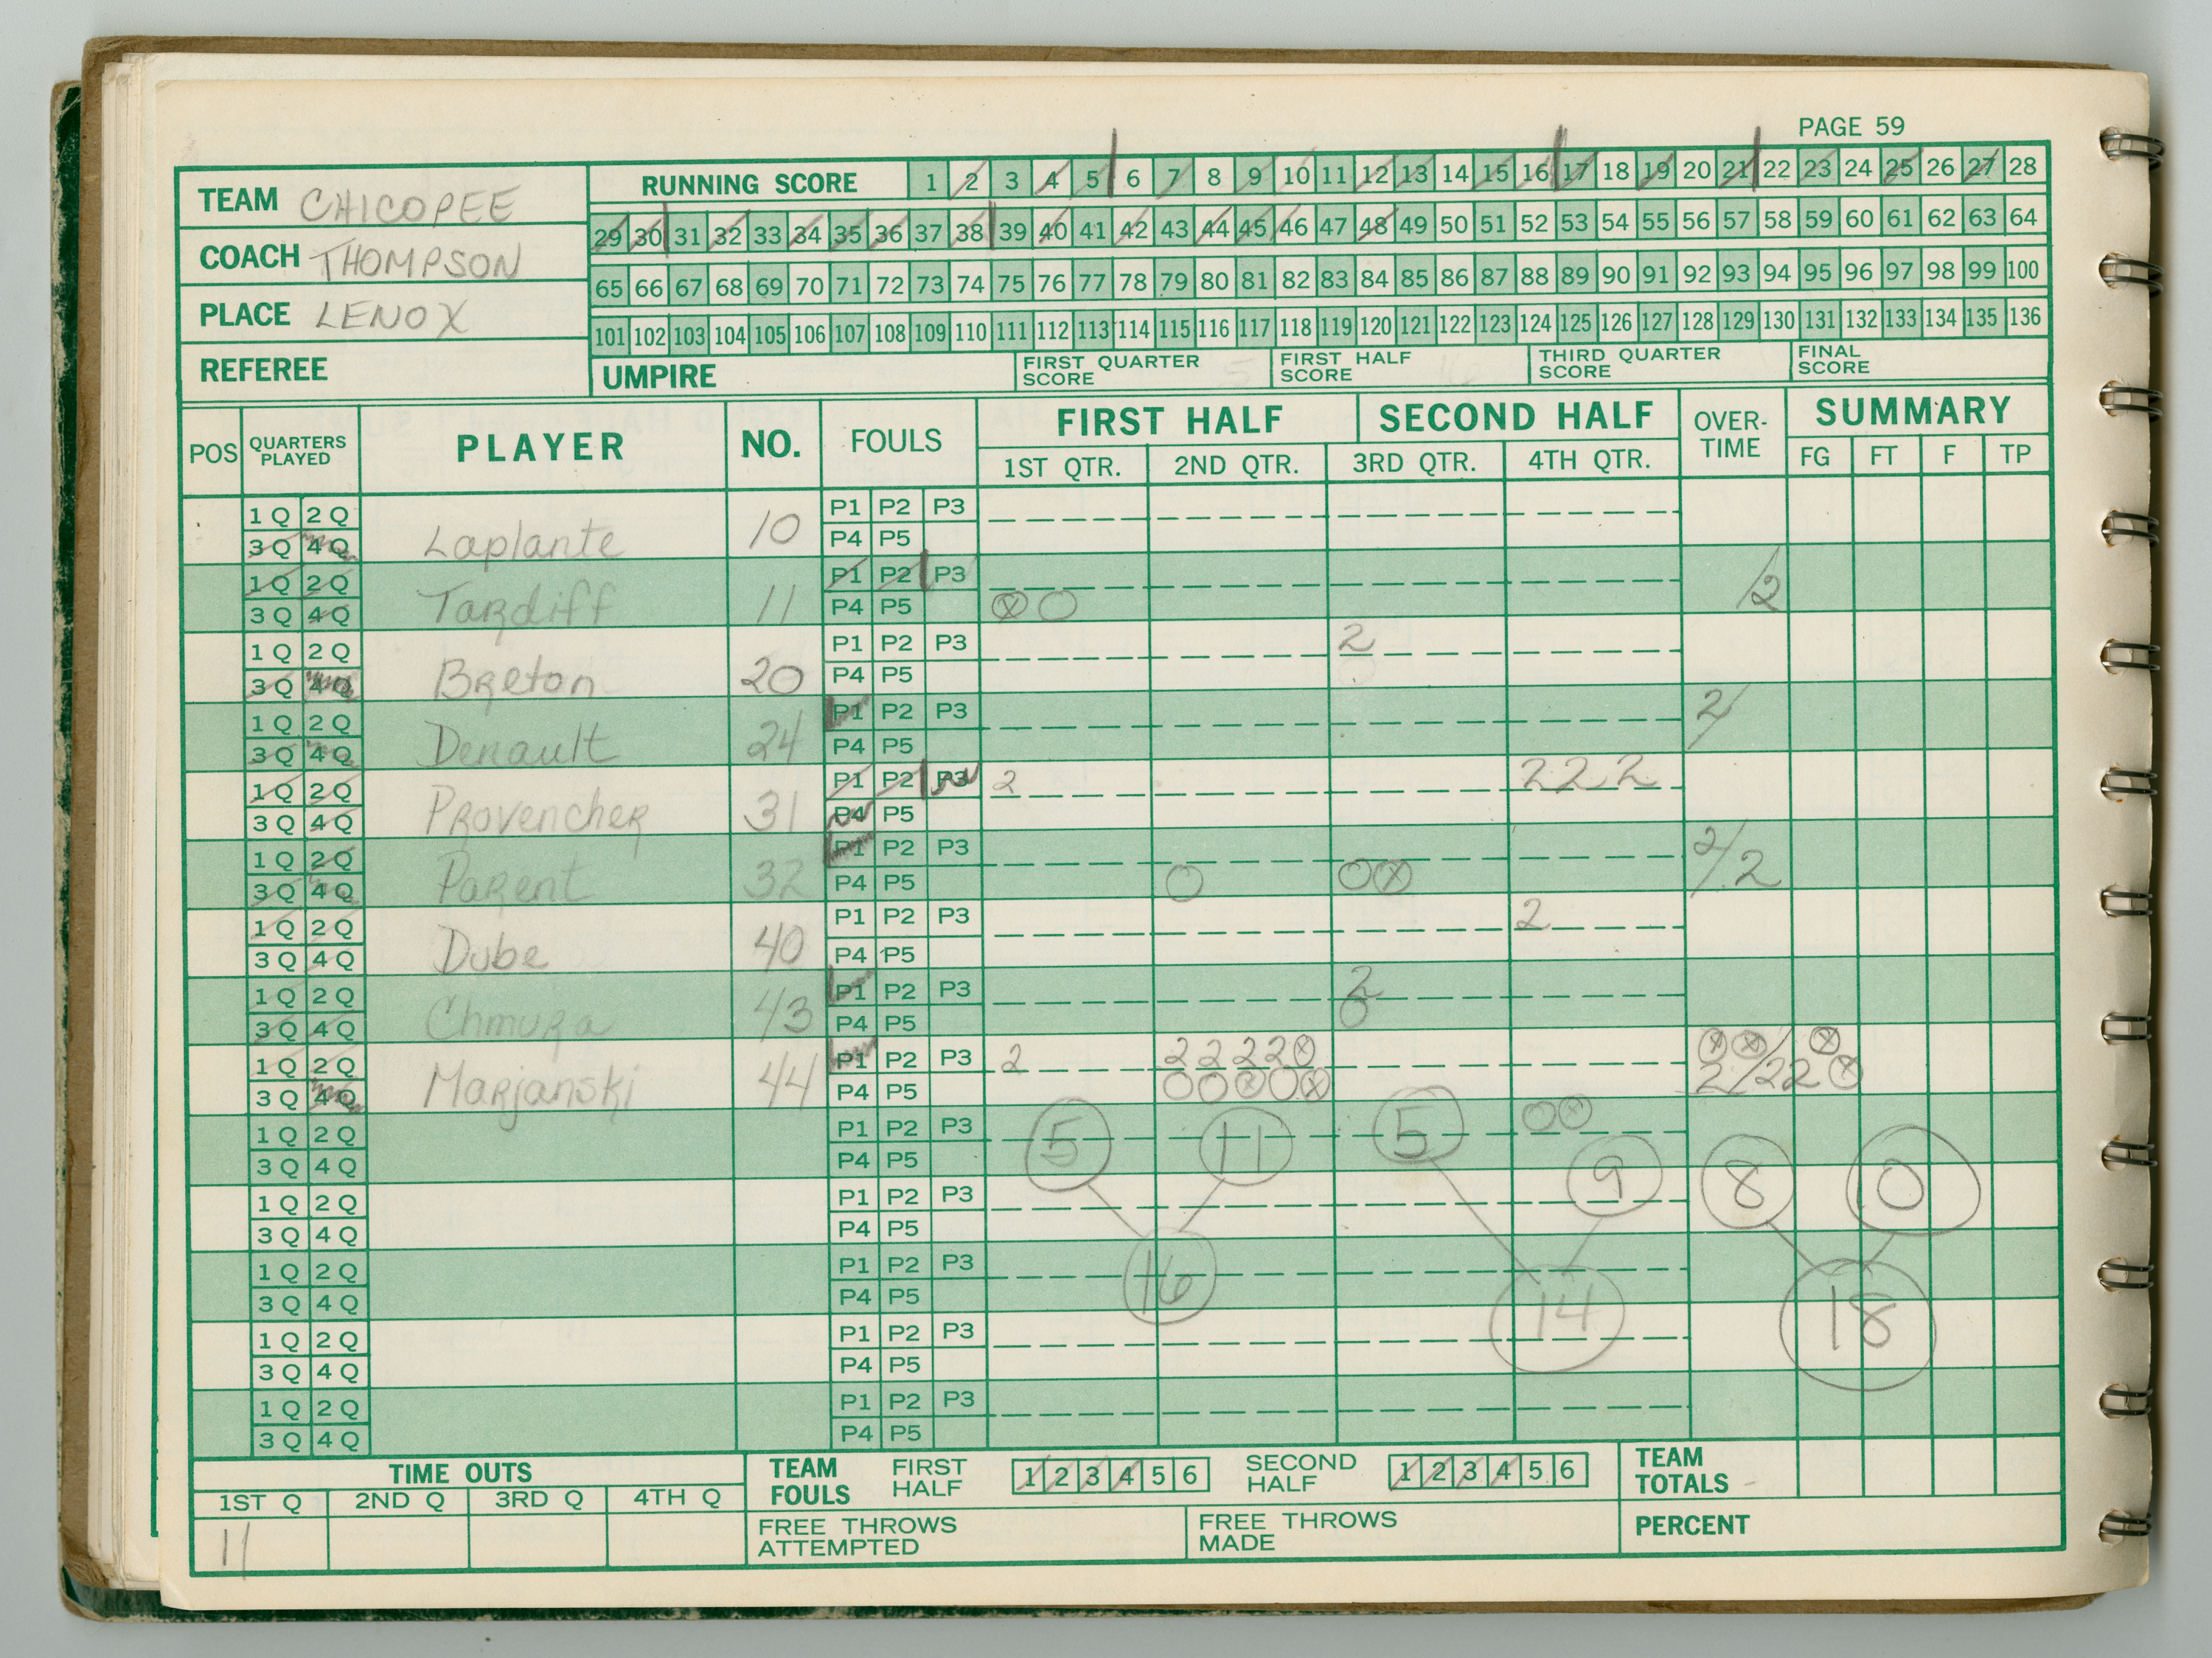 PAGE 59
TEAM CHICOPEE
COACH THOMPSON
PLACE LENOX
REFEREE
RUNNING SCORE 1 2 3 4 5 6 7 8 9 10 11 12 13 14 15 16 17 18 19 20 21 22 23 24 25 26 27 28
29 30 31 32 33 34 35 36 37 38 39 40 41 42 43 44 45 46 47 48 49 50 51 52 53 54 55 56 57 58 59 60 61 62 63 64
65 66 67 68 69 70 71 72 73 74 75 76 77 78 79 80 81 82 83 84 85 86 87 88 89 90 91 92 93 94 95 96 97 98 99 100
101 102 103 104 105 106 107 108 109 110 111 112 113 114 115 116 117 118 119 120 121 122 123 124 125 126 127 128 129 130 131 132 133 134 135 136
UMPIRE
FIRST QUARTER
SCORE 5
FIRST HALF
SCORE 16
THIRD QUARTER
SCORE
FINAL
SCORE
POS
QUARTERS
PLAYED
PLAYER
NO.
FOULS
FIRST HALF
SECOND HALF
1ST QTR. 2ND QTR. 3RD QTR. 4TH QTR.
OVER-
TIME
SUMMARY
FG FT F TP
1Q 2Q P1 P2 P3
3Q 4Q Laplante 10 P4 P5
1Q 2Q P1 P2 P3
3Q 4Q Tardiff 11 P4 P5 ⓧ O /2
1Q 2Q P1 P2 P3 2
3Q 4Q Breton 20 P4 P5
1Q 2Q P1 P2 P3 2/
3Q 4Q Denault 24 P4 P5
1Q 2Q P1 P2 P3 2 2 2 2
3Q 4Q Provencher 31 P4 P5
1Q 2Q P1 P2 P3
3Q 4Q Parent 32 P4 P5 O O ⓧ 2/2
1Q 2Q P1 P2 P3 2
3Q 4Q Dube 40 P4 P5
1Q 2Q P1 P2 P3 2
3Q 4Q Chmura 43 P4 P5 O
1Q 2Q P1 P2 P3 2 2 2 2 2 ⓧ ⓧ ⓧ / ⓧ
3Q 4Q Marjanski 44 P4 P5 O O ⓧ O ⓧ 2/22 ⓧ
1Q 2Q P1 P2 P3 5 11 5 O ⓧ
3Q 4Q P4 P5
1Q 2Q P1 P2 P3 9 8 10
3Q 4Q P4 P5
1Q 2Q P1 P2 P3 16
3Q 4Q P4 P5
1Q 2Q P1 P2 P3 14 18
3Q 4Q P4 P5
1Q 2Q P1 P2 P3
3Q 4Q P4 P5
TIME OUTS
1ST Q 2ND Q 3RD Q 4TH Q
11
TEAM
FOULS
FIRST
HALF
1 2 3 4 5 6
SECOND
HALF
1 2 3 4 5 6
FREE THROWS
ATTEMPTED
FREE THROWS
MADE
TEAM
TOTALS
PERCENT